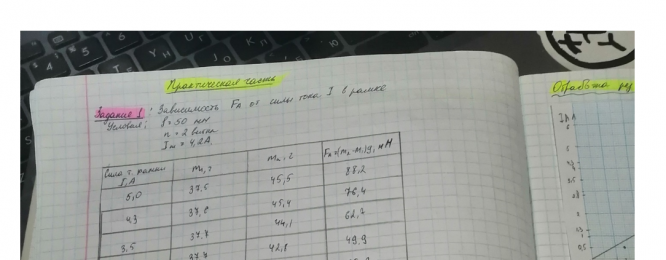 Практическая часть
Задание 1: Зависимость FА от силы тока I в рамке
Условия: l = 50 мм
n = 2 витка
Iм = 4,2А
Сила т. рамки I, А | m₁, г | m₂, г | FА=(m₂-m₁)g, мН
5,0 | 37,5 | 45,5 | 88,2
4,3 | 37,8 | 45,4 | 76,4
3,5 | 37,7 | 44,1 | 62,7
37,7 | 42,8 | 49,9
Обработка
I, А